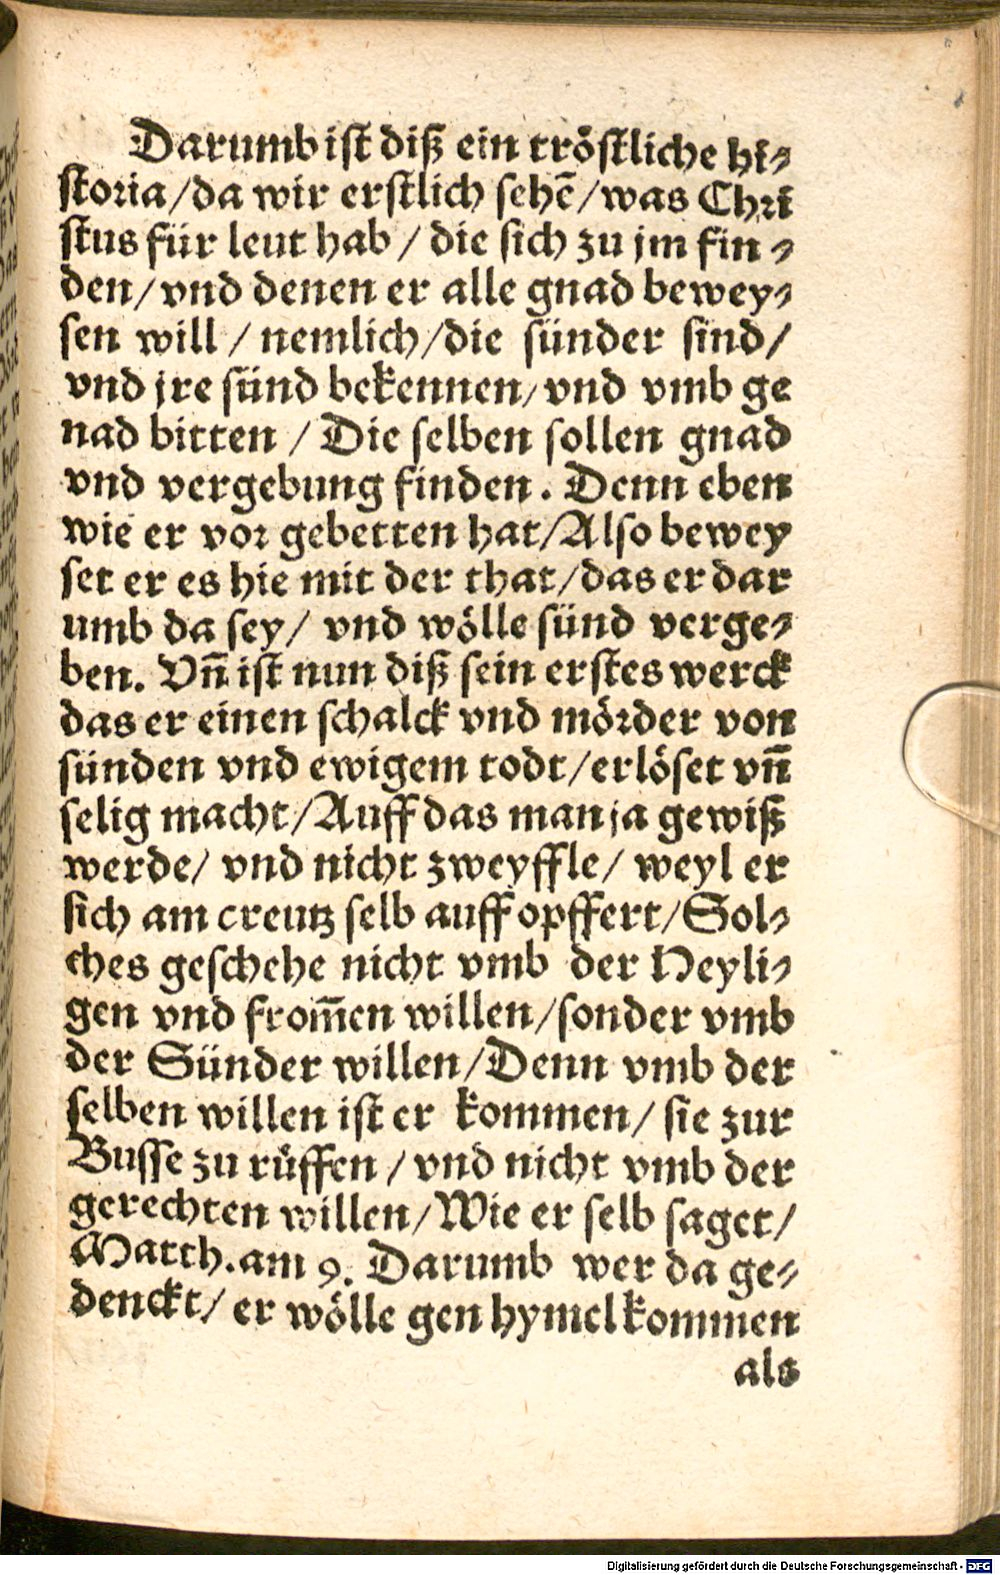 Darumb ist diß ein tröstliche hi⸗
storia/da wir erstlich sehē/was Chri
stus für leut hab / die sich zu jm fin ⸗
den/vnd denen er alle gnad bewey⸗
sen will / nemlich/die sünder sind/
vnd jre sünd bekennen/vnd vmb ge
nad bitten / Die selben sollen gnad
vnd vergebung finden. Denn eben
wie er vor gebetten hat/Also bewey
set er es hie mit der that/das er dar
umb da sey/ vnd wölle sünd verge⸗
ben. Vn̄ ist nun diß sein erstes werck
das er einen schalck vnd mörder von
sünden vnd ewigem todt/erlöset vn̄
selig macht/Auff das man ja gewiß
werde/ vnd nicht zweyffle/ weyl er
sich am creutz selb auff opffert/Sol⸗
ches geschehe nicht vmb der Heyli⸗
gen vnd from̄en willen/sonder vmb
der Sünder willen/Denn vmb der
selben willen ist er kommen/ sie zur
Busse zu rüffen / vnd nicht vmb der
gerechten willen/Wie er selb saget/
Matth.am 9. Darumb wer da ge⸗
denckt/ er wölle gen hymel kommen
als
Digitalisierung gefördert durch die Deutsche Forschungsgemeinschaft - DFG